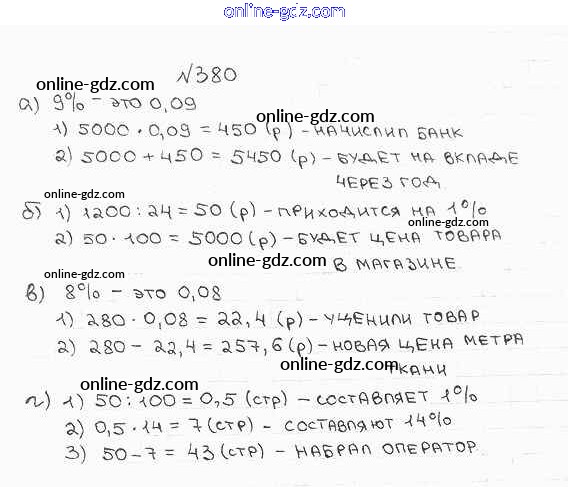 online-gdz.com
№380
online-gdz.com
а) 9% - это 0,09
online-gdz.com
1) 5000 · 0,09 = 450 (р) - начислил банк
2) 5000 + 450 = 5450 (р) - будет на вкладе
через год.
online-gdz.com
б) 1) 1200 : 24 = 50 (р) - приходится на 1%
2) 50 · 100 = 5000 (р) - будет цена товара
online-gdz.com
в магазине.
online-gdz.com
в) 8% - это 0,08
1) 280 · 0,08 = 22,4 (р) - уценили товар
2) 280 - 22,4 = 257,6 (р) - новая цена метра
online-gdz.com
ткани
online-gdz.com
г) 1) 50 : 100 = 0,5 (стр) - составляет 1%
2) 0,5 · 14 = 7 (стр) - составляют 14%
3) 50 - 7 = 43 (стр) - набрал оператор.